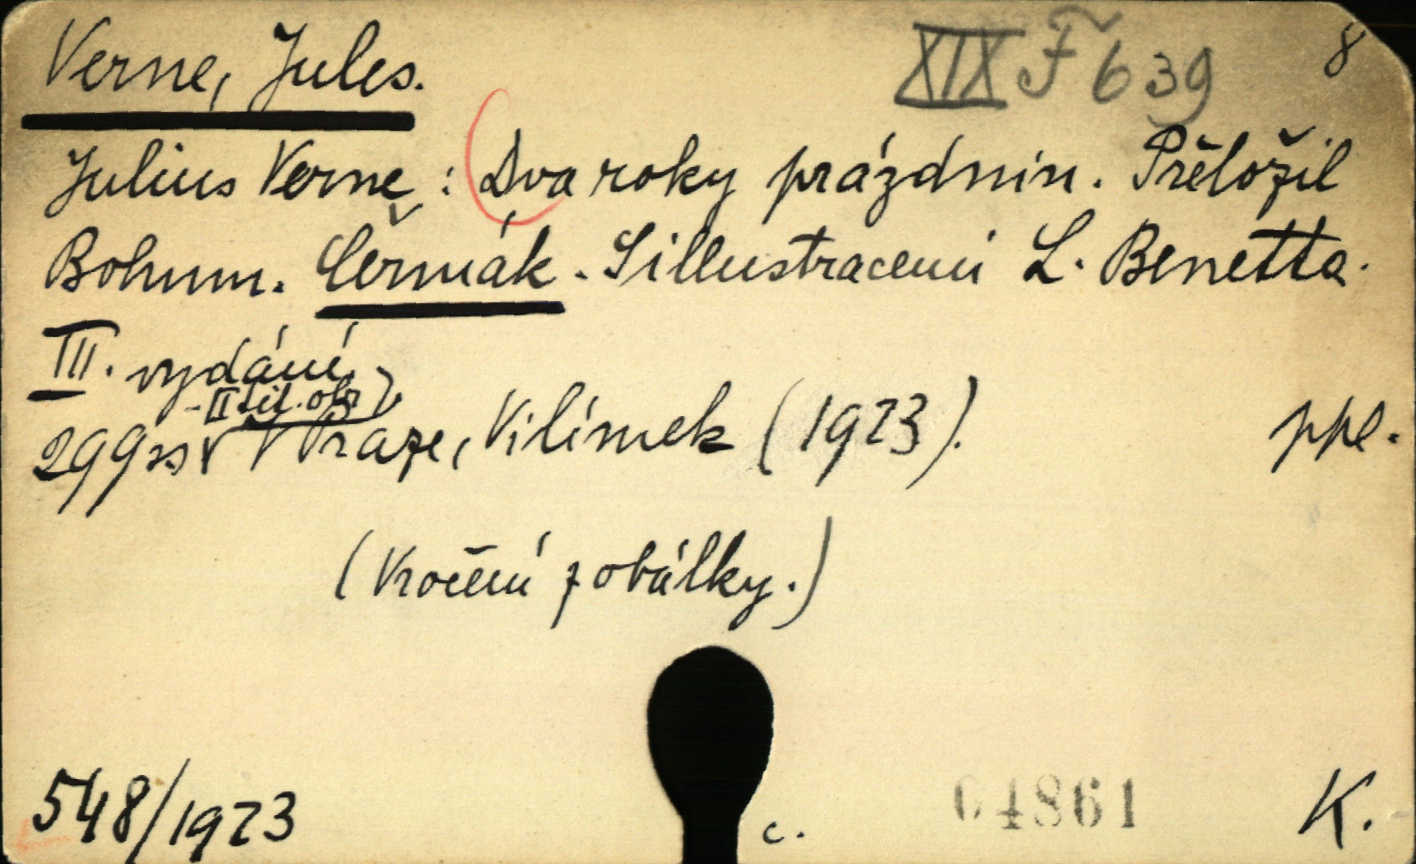 Verne, Jules. XIX F 639 8
Julius Verne: Dva roky prázdnin. Přeložil
Bohum. Čermák. S illustracemi L. Benetta.
III. vydání.
- II tit. obr.
299 ss V Praze, Vilímek (1923). ppl.
(Vročení z obálky.)
548/1923 c. 04861 K.